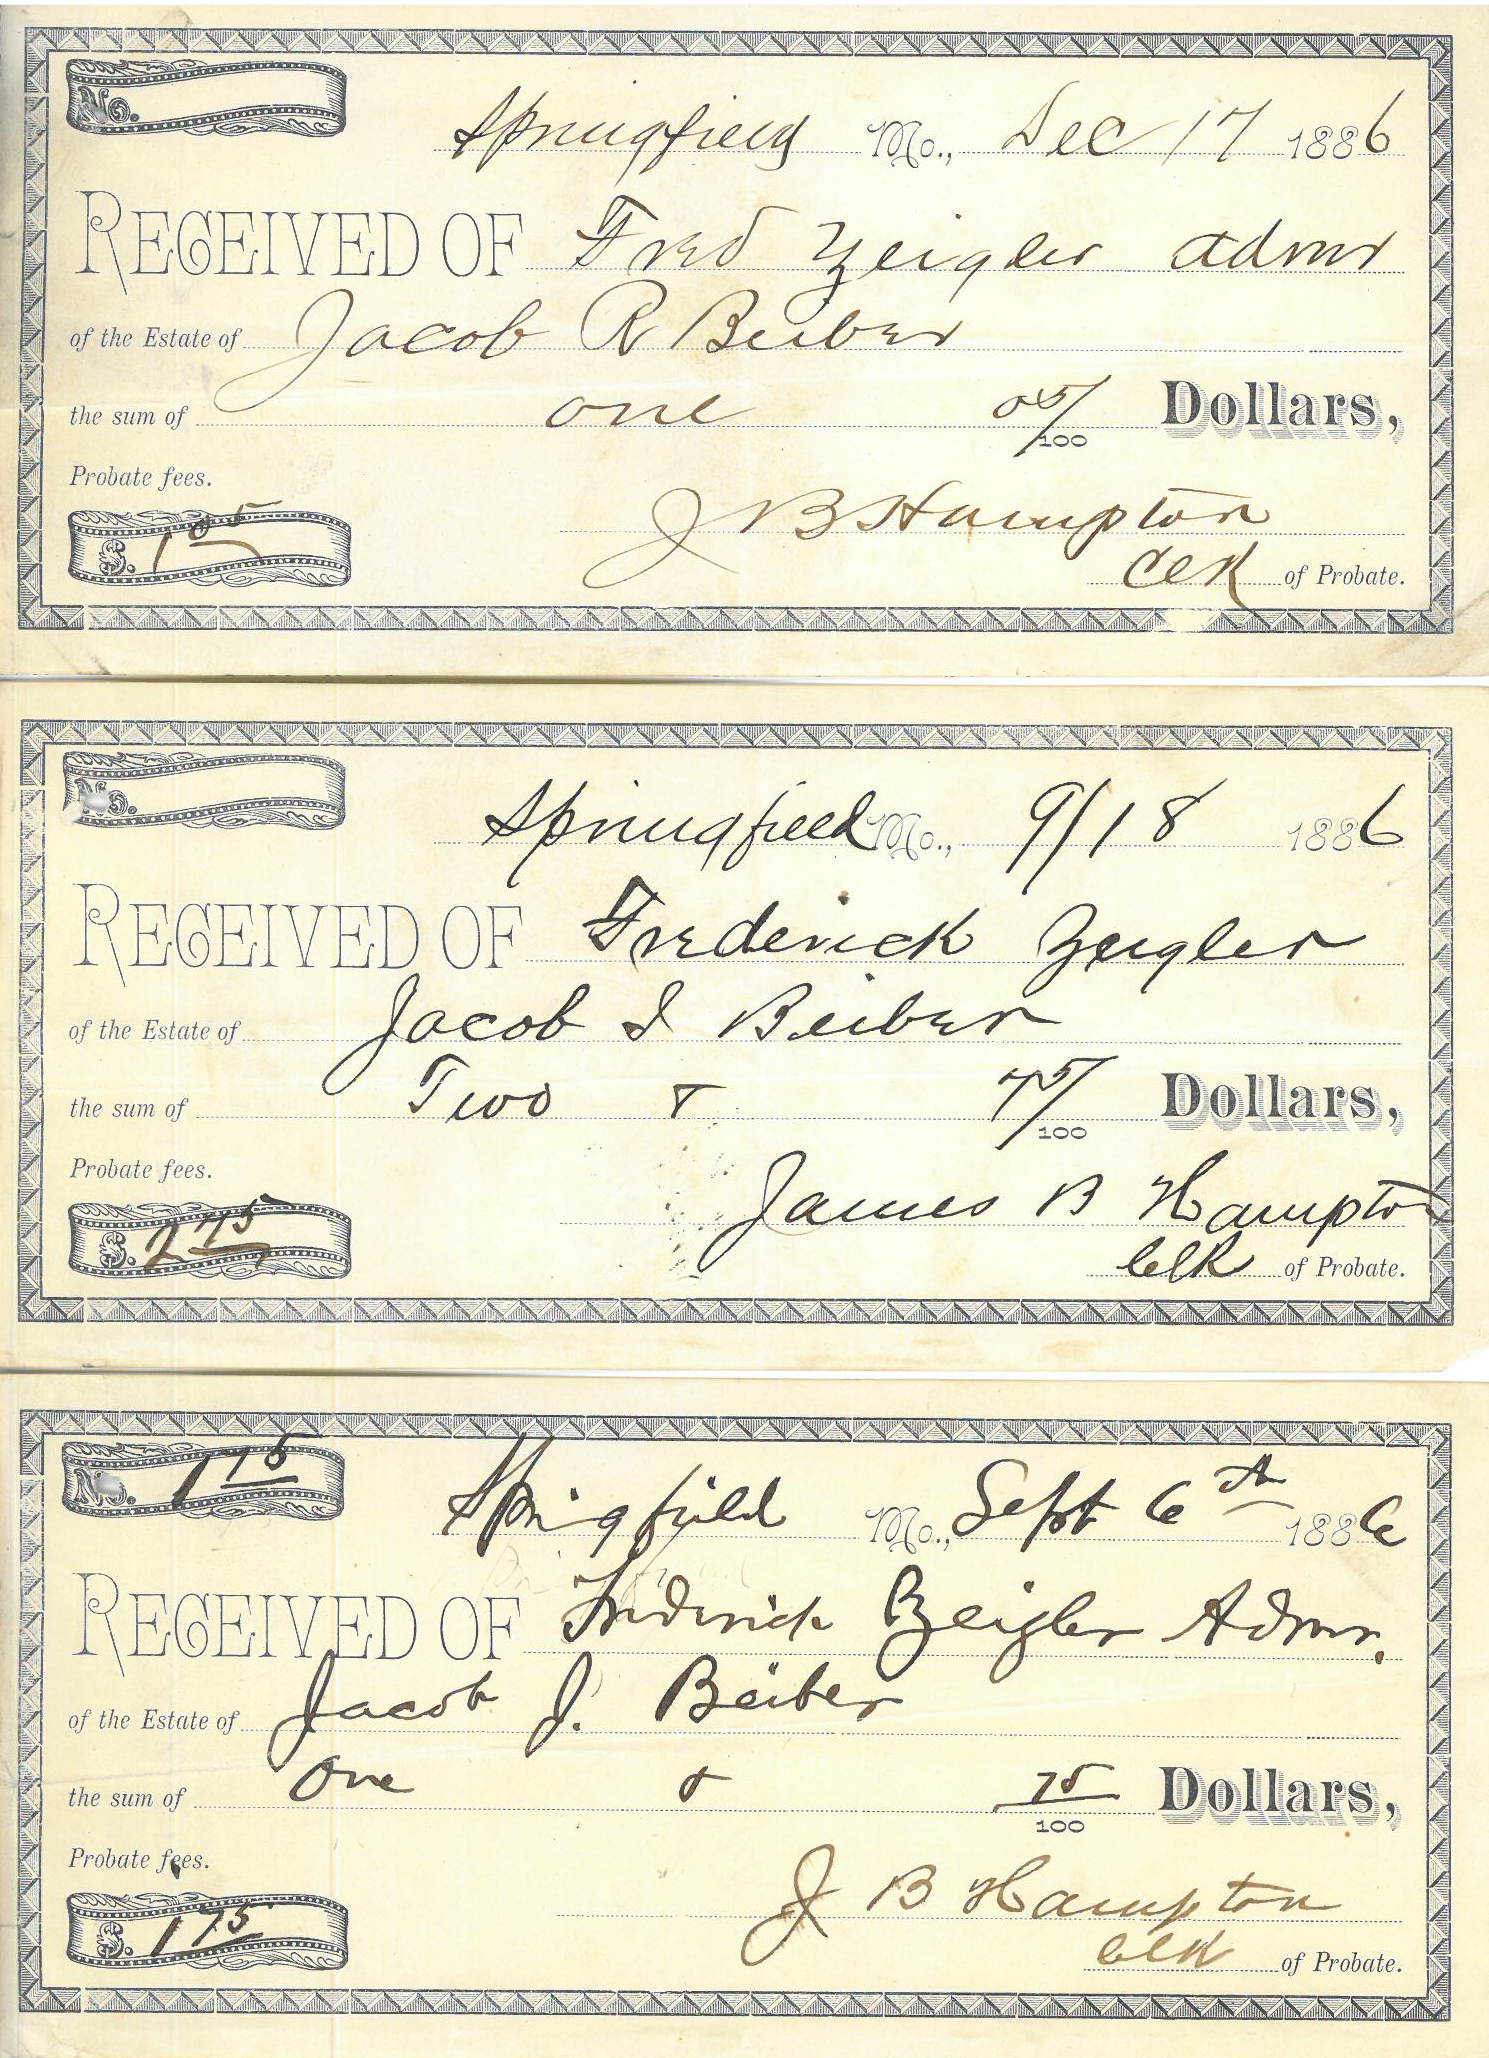 No.
Springfield Mo., Dec 17 1886
RECEIVED OF Fred Zeigler Admr
of the Estate of Jacob R Beiber
the sum of one 05/100 Dollars,
Probate fees.
$. 1 05
J B Hampton
Clk of Probate.
No.
Springfield Mo., 9/18 1886
RECEIVED OF Frederick Zeigler
of the Estate of Jacob I Beiber
the sum of Two & 75/100 Dollars,
Probate fees.
$. 2 75
James B Hampton
Clk of Probate.
No. 1 75
Springfield Mo., Sept 6th 1886
RECEIVED OF Frederick Zeigler Admr.
of the Estate of Jacob J. Beiber
the sum of One & 75/100 Dollars,
Probate fees.
$. 1 75
J B Hampton
Clk of Probate.